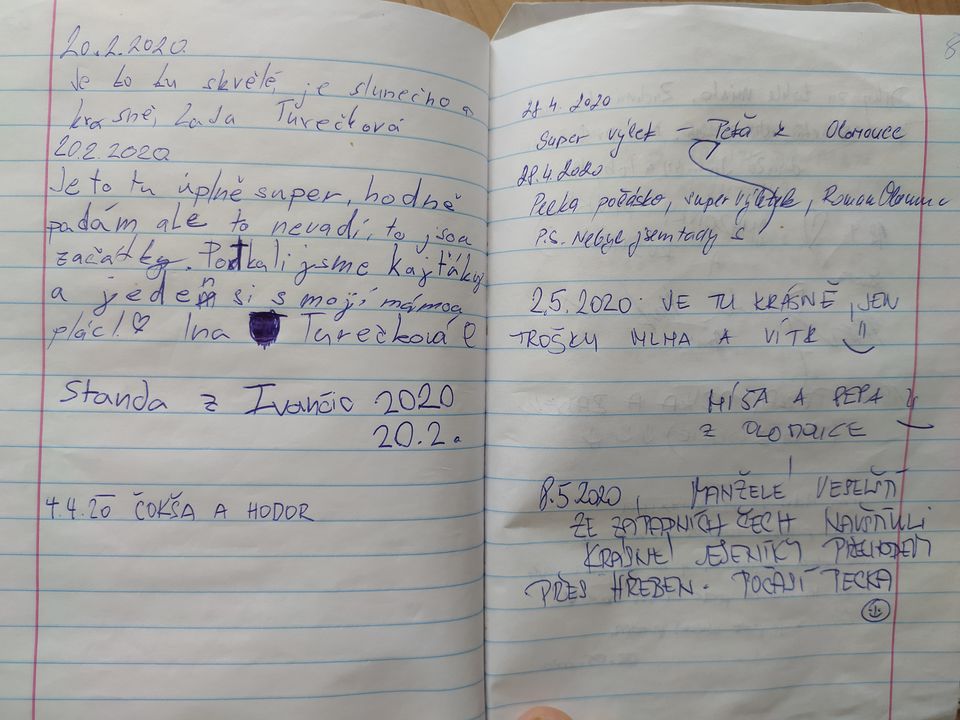 20.2.2020
Je to tu skvělé, je slunečno a
krásně, Lada Turečková
20.2.2020
Je to tu úplně super, hodně
padám ale to nevadí, to jsou
začátky. Potkali jsme kajťáky
a jeden si s mojí mámou
plácl! ♡ Ina Turečková
Standa z Ivančic 2020
20.2.
4.4.20 ČOKŠA A HODOR
28.4.2020
Super výlet - Peťa z Olomouce
28.4.2020
Pecka počásko, super výletek, Roman Olomouc
P.S. Nebyl jsem tady
2.5.2020 JE TU KRÁSNĚ, JEN
TROŠKU MLHA A VÍTR
MÍŠA A PEPA
Z OLOMOUCE
8.5.2020, MANŽELÉ VESELŠTÍ
ZE ZÁPADNÍCH ČECH NAVŠTÍVILI
KRÁSNÉ JESENÍKY PŘECHODEM
PŘES HŘEBEN. POČASÍ PECKA